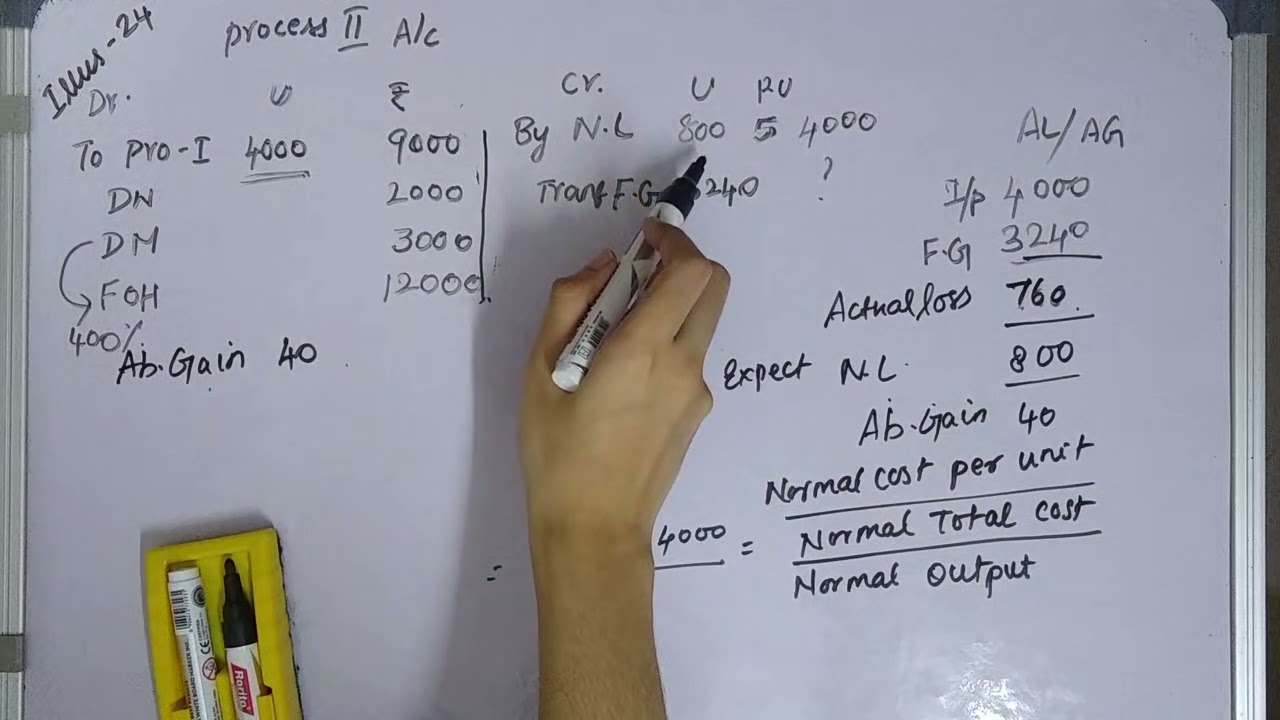 Illus-24
process II A/c
Dr. U ₹
To Pro-I 4000 9000
DN 2000
DM 3000
FOH 12000
400%
Ab.Gain 40
Cr. U PU
By N.L 800 5 4000
Transf F.G 240 ?
AL/AG
I/p 4000
F.G 3240
Actual loss 760
Expect N.L. 800
Ab.Gain 40
= 4000 = Normal cost per unit
Normal Total cost
Normal Output
Rorito